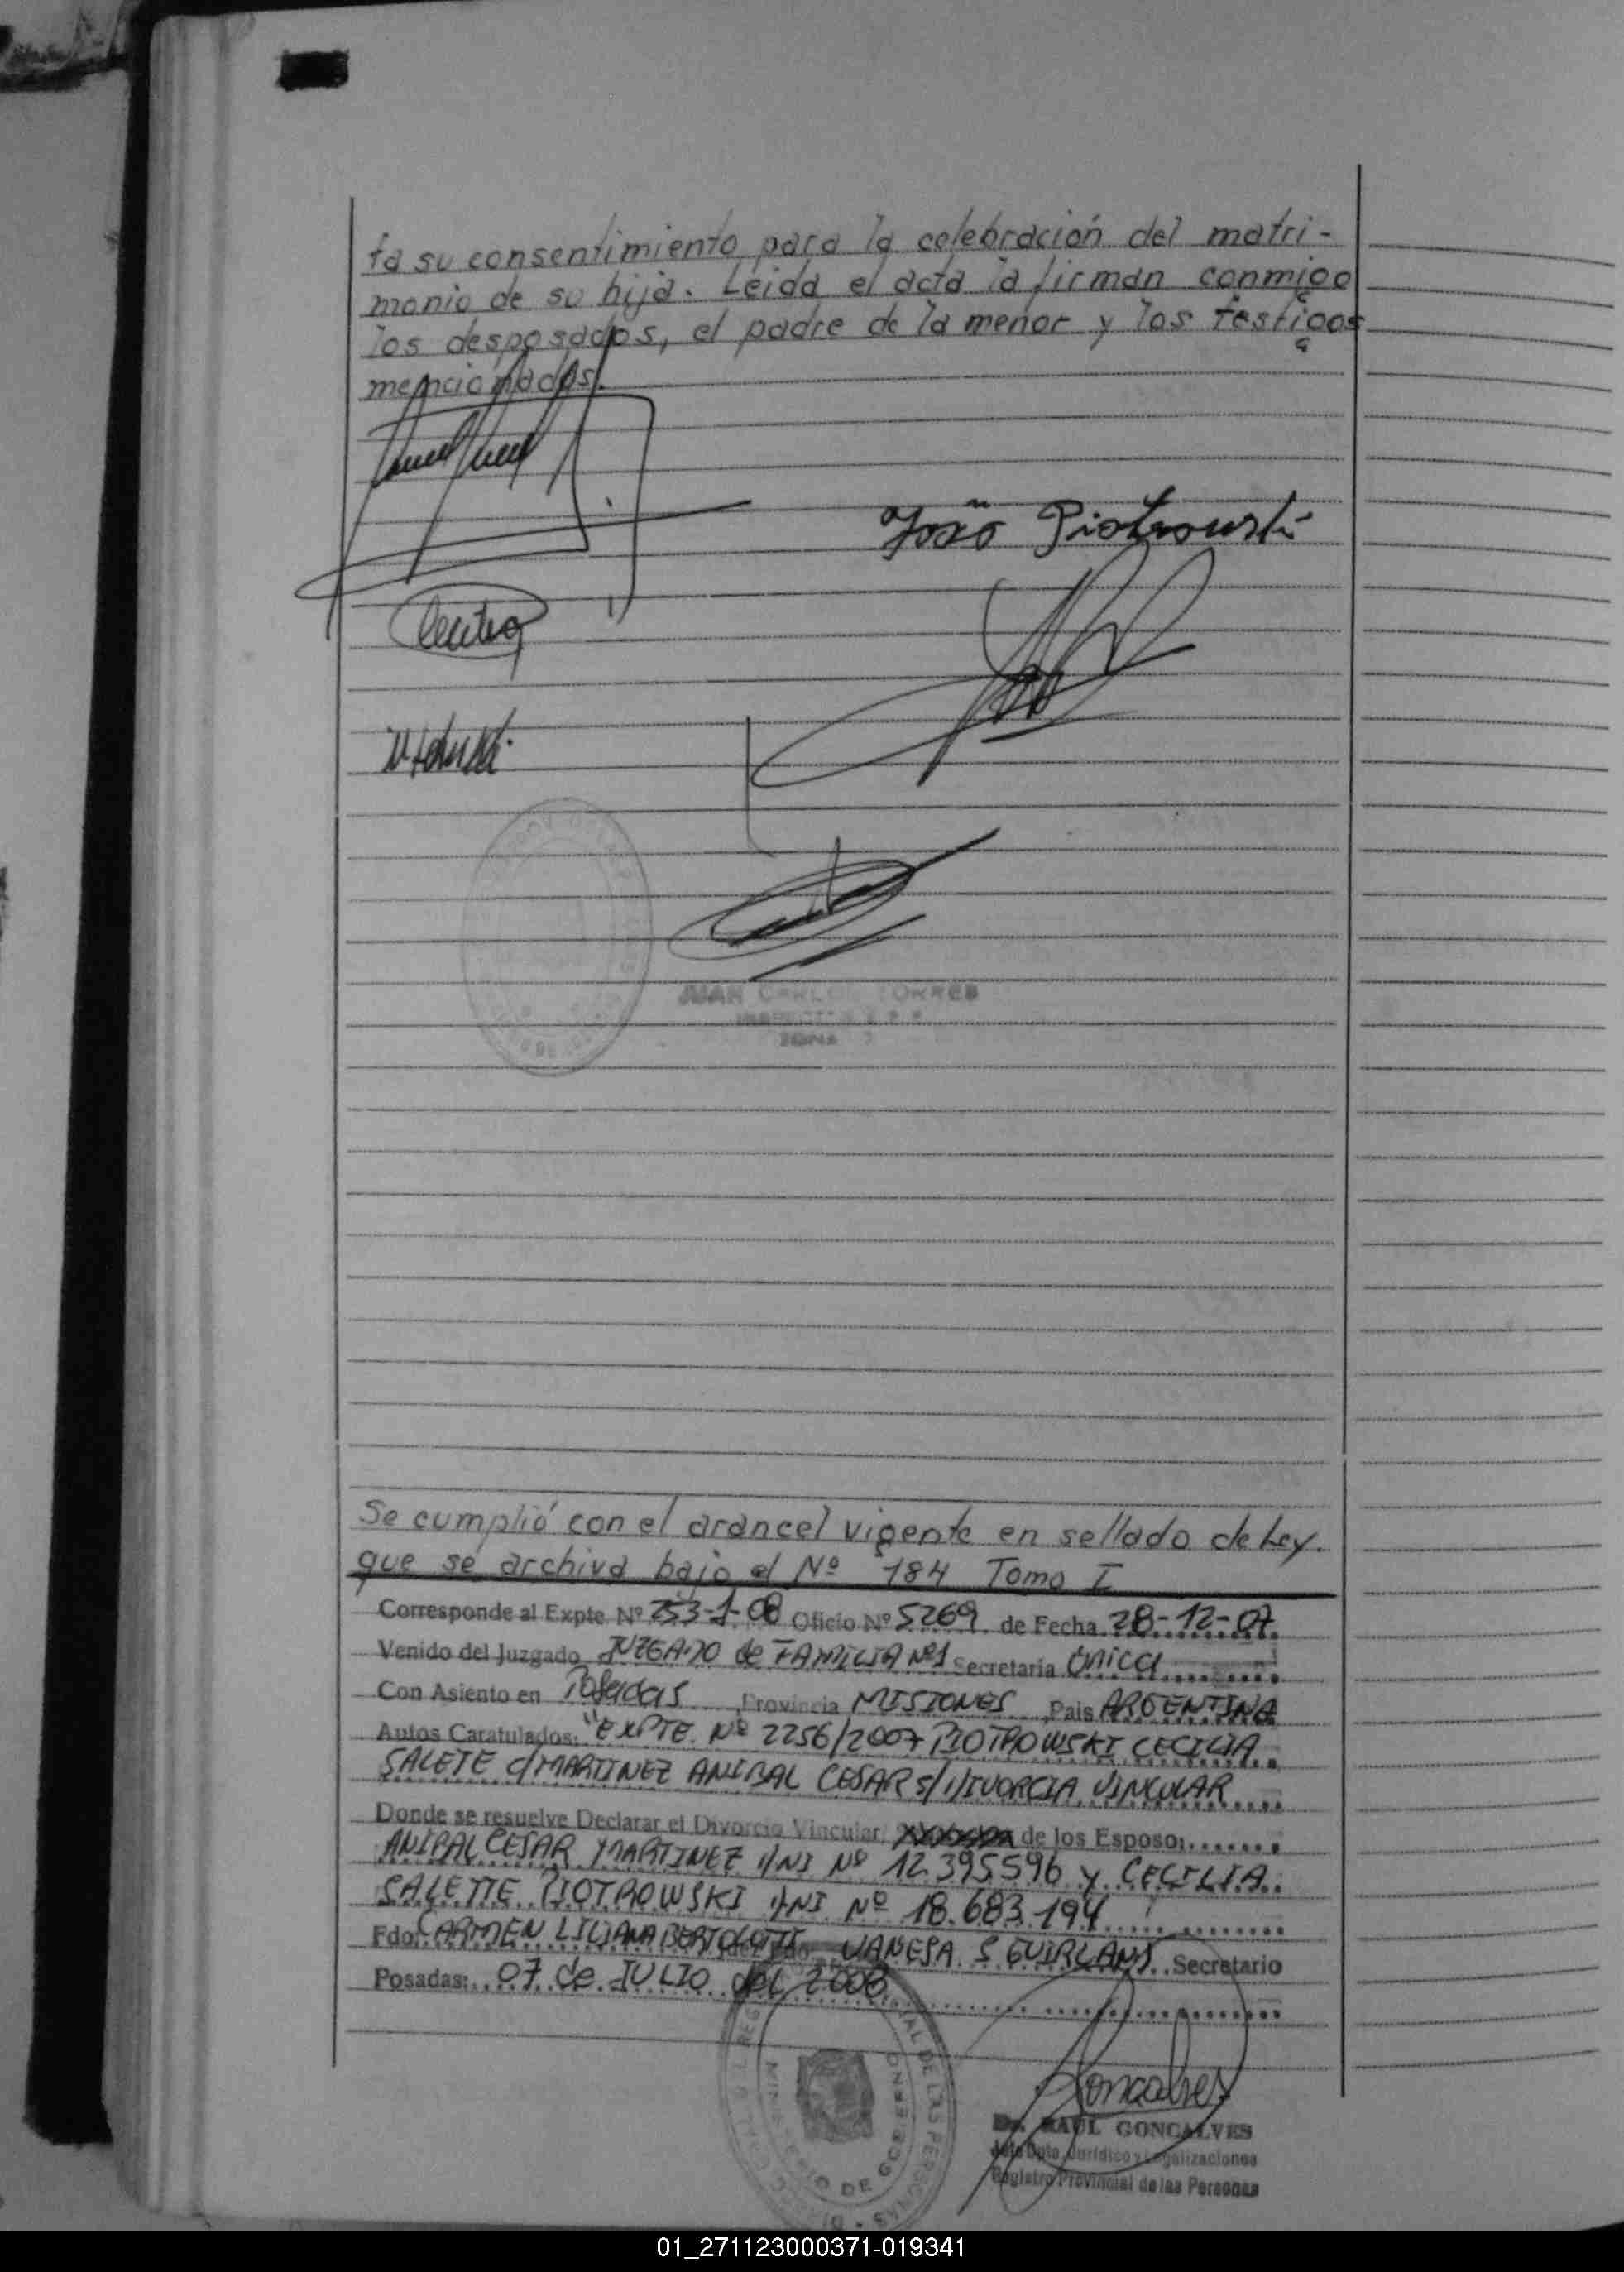 ta su consentimiento para la celebración del matri-
monio de su hija. Leida el acta la firman conmigo
los desposados, el padre de la menor y los testigos
mencionados.
João Piotrowski
JUAN CARLOS TORRES
ZONA
Se cumplió con el arancel vigente en sellado de Ley.
que se archiva bajo el Nº 184 Tomo I
Corresponde al Expte Nº 253-1-08 Oficio Nº 5269 de Fecha 28-12-07
Venido del Juzgado JUZGADO de FAMILIA Nº1 Secretaria única
Con Asiento en Posadas Provincia MISIONES Pais ARGENTINA
Autos Caratulados: "EXPTE. Nº 2256/2007 PIOTROWSKI CECILIA
SALETE c/MARTINEZ ANIBAL CESAR s/DIVORCIA VINCULAR
Donde se resuelve Declarar el Divorcio Vincular, de los Esposo:
ANIBAL CESAR MARTINEZ DNI Nº 12.395596 y CECILIA
SALETTE PIOTROWSKI DNI Nº 18.683.194
Fdo: CARMEN LILIANA BERTOLOTTI VANESA S GUIRLAND Secretario
Posadas: 07 de JULIO del 2008
Goncalves
Dr. RAUL GONCALVES
Jefe Dpto. Jurídico y Legalizaciones
Registro Provincial de las Personas
MINISTERIO DE GOBIERNO
01_271123000371-019341